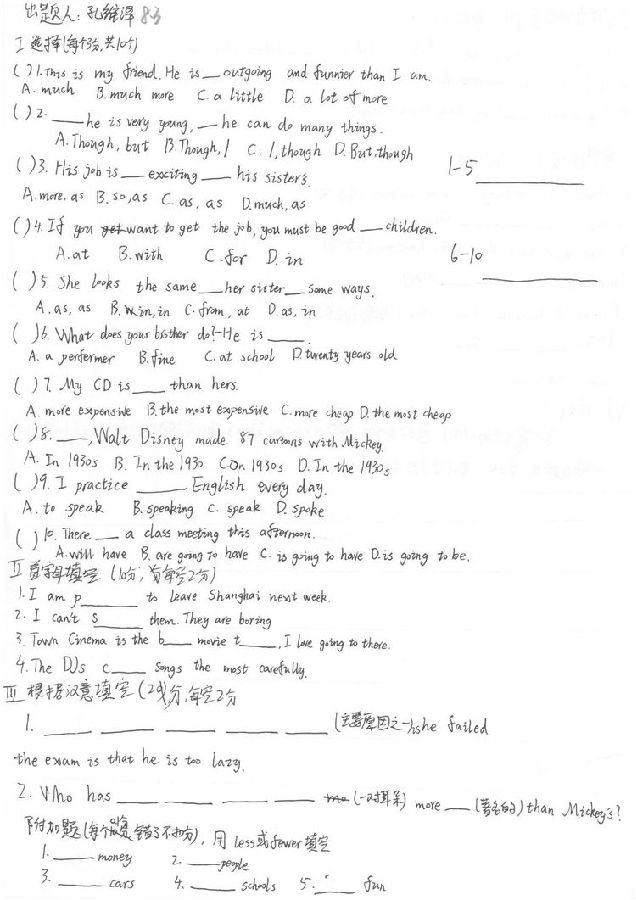 出题人: 孔维泽 83
I 选择(每个1分,共10分)
( )1. This is my friend. He is __ outgoing and funnier than I am.
A. much B. much more C. a little D. a lot of more
( )2. ____ he is very young, __ he can do many things.
A. Though, but B. Though, / C. /, though D. But, though
( )3. His job is __ exciting ___ his sister's.
A. more, as B. so, as C. as, as D. much, as
1-5 ________
( )4. If you want to get the job, you must be good __ children.
A. at B. with C. for D. in
6-10 ________
( )5. She looks the same __ her sister __ some ways.
A. as, as B. in, in C. from, at D. as, in
( )6. What does your brother do? - He is ____.
A. a performer B. fine C. at school D. twenty years old
( )7. My CD is ___ than hers.
A. more expensive B. the most expensive C. more cheap D. the most cheap
( )8. ___, Walt Disney made 87 cartoons with Mickey.
A. In 1930s B. In the 1930 C. On 1930s D. In the 1930s
( )9. I practice ____ English every day.
A. to speak B. speaking C. speak D. spoke
( )10. There __ a class meeting this afternoon.
A. will have B. are going to have C. is going to have D. is going to be.
II 首字母填空 (10分, 每空2分)
1. I am p______ to leave Shanghai next week.
2. I can't s_____ them. They are boring
3. Town Cinema is the b___ movie t____, I love going to there.
4. The DJs c____ songs the most carefully.
III 根据汉意填空 (2分, 每空2分)
1. ____ ____ ____ ____ ____ (主要原因之一) he failed
the exam is that he is too lazy.
2. Who has ____ ____ ____ ____ (一对耳朵) more ___ (著名的) than Mickey's?
附加题(每个1分, 错了不扣分), 用less或fewer填空
1. ____ money 2. ____ people
3. ____ cars 4. ____ schools 5. ____ fun